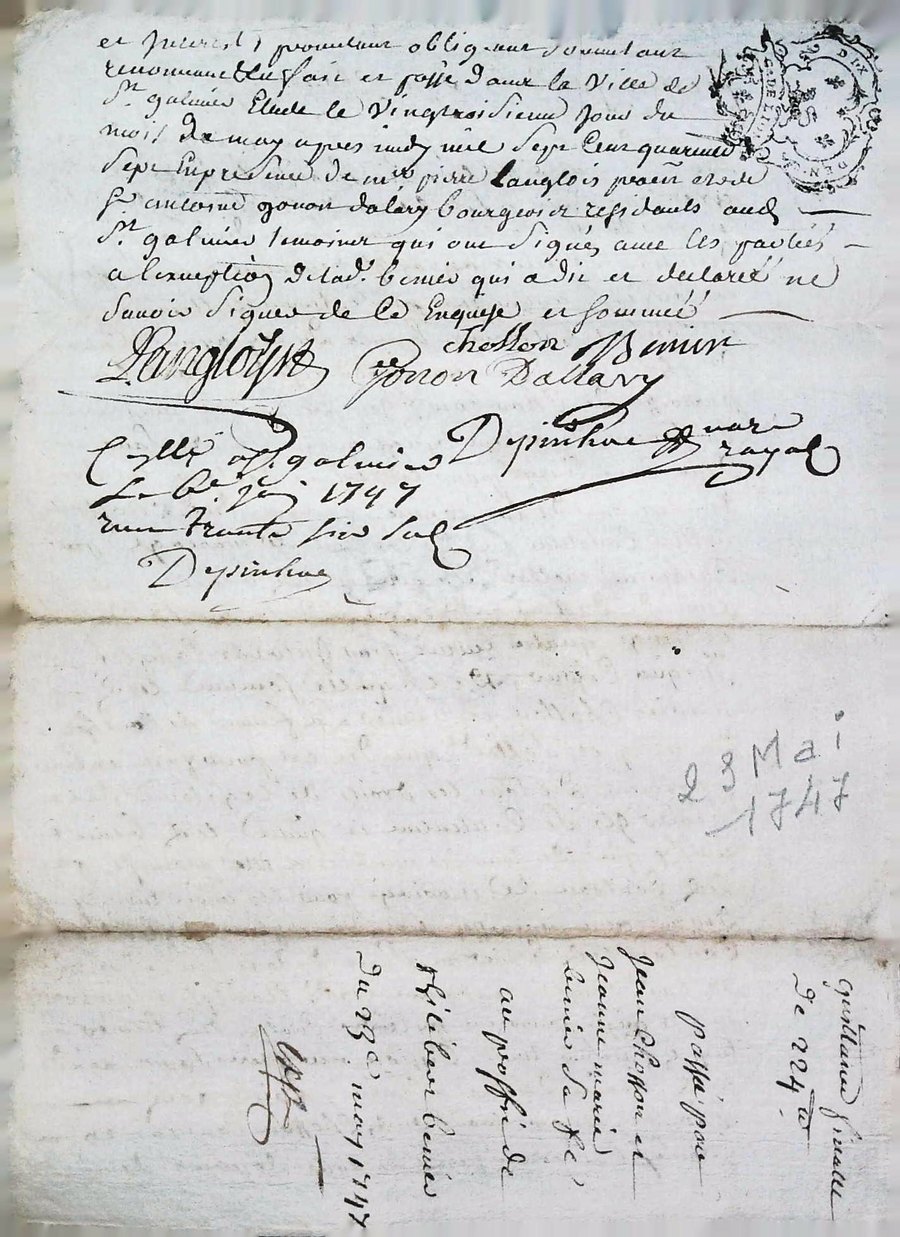 et Interests promettant obligeant soumettant
renonceant Fait et passé dans la Ville de
St. galmier Etude le Vingtroisieme jour du
mois de may apres midy mil Sept Cent quarente
Sept En presence de mre pierre Langlois et de
Sr. antoine gonon dalary bourgeois residants aud
St. galmier temoins qui ont Signés avec les parties
a l'exception de lad. benier qui a dit et declaré ne
Savoir Signer de ce Enquise et sommée
Langlois chosson Benier
Gonon Dallary
Depinhac nore
royal
Collé a St. galmier
Le 6e. 1747
trente six sol
Depinhac
23 Mai
1747
quittance finalle
De 224 tt
passé par
Jean Chosson et
Jeanne marie
benier Sa fe
au proffit de
philibert benier
du 23e may 1747
DIX
DEN
G. DE LION